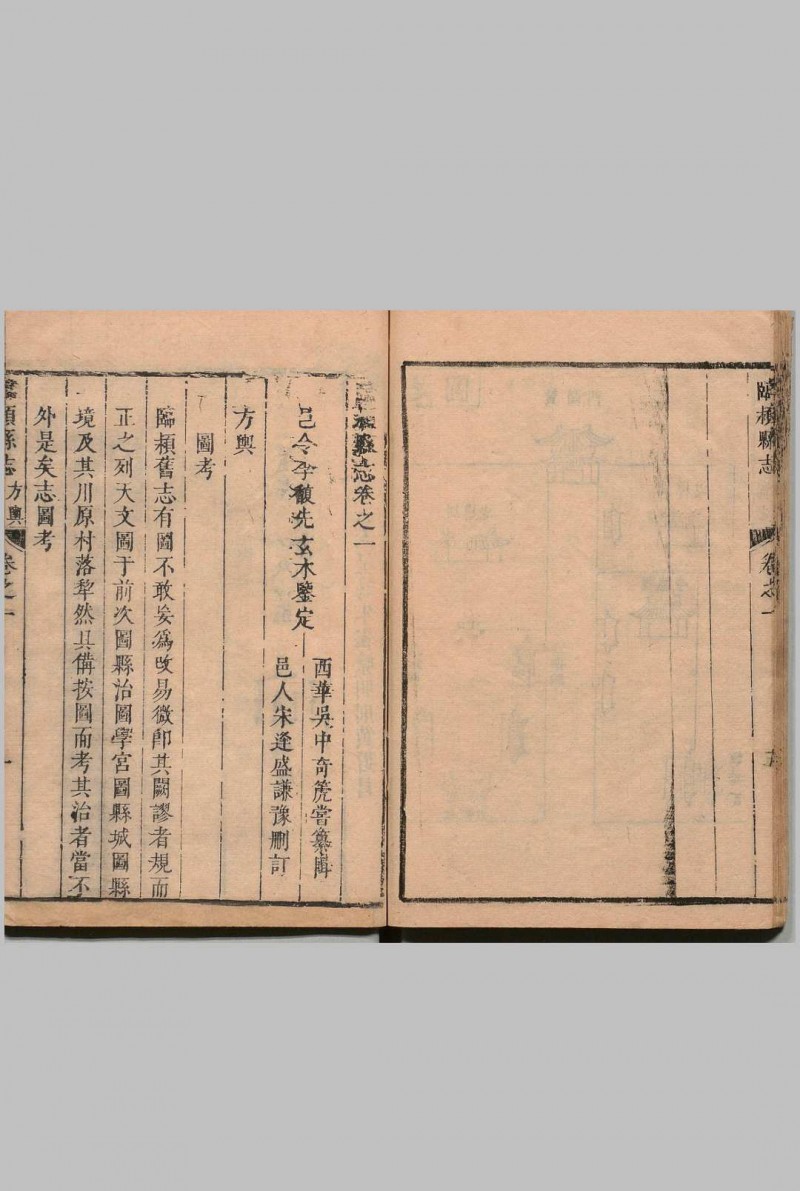 臨潁縣志
卷之一
五
臨潁縣志卷之一
邑令李馥先玄木鑒定
西華吳中奇箎嘗纂輯
邑人宋逢盛謙豫刪訂
方輿
圖考
臨潁舊志有圖不敢妄為改易微卽其闕謬者規而
正之列天文圖于前次圖縣治圖學宮圖縣城圖縣
境及其川原村落犁然具備按圖而考其治者當不
外是矣志圖考
臨潁縣志
方輿
卷之一
一